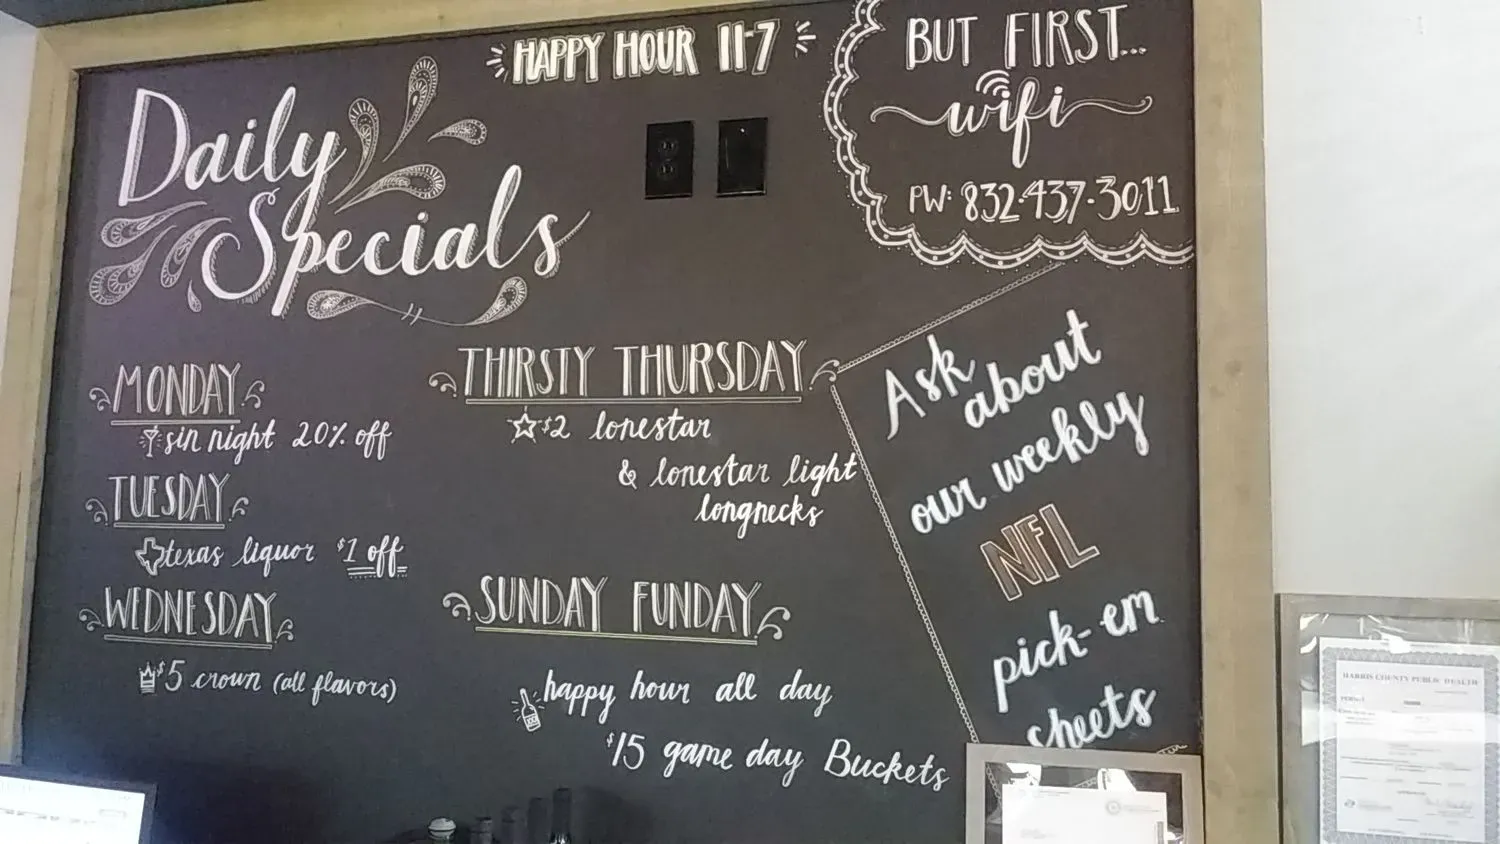 HAPPY HOUR 11-7
Daily
Specials
BUT FIRST...
wifi
PW: 832.437.3011
MONDAY
sin night 20% off
TUESDAY
texas liquor $1 off
WEDNESDAY
$5 crown (all flavors)
THIRSTY THURSDAY
$2 lonestar
& lonestar light
longnecks
SUNDAY FUNDAY
happy hour all day
$15 game day Buckets
Ask
about
our weekly
NFL
pick-em
sheets
HARRIS COUNTY PUBLIC HEALTH